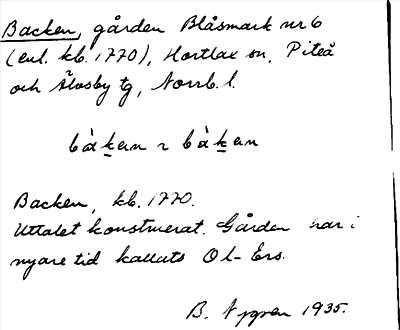 Backen, gården Blåsmark nr 6
(enl. kb. 1770), Hortlax sn, Piteå
och Älvsby tg, Norrb. l.
bàk̲en ~ bàk̲en
Backen, kb. 1770.
Uttalet konstruerat. Gården har i
nyare tid kallats Ol-Ers.
B. Nygren 1935.